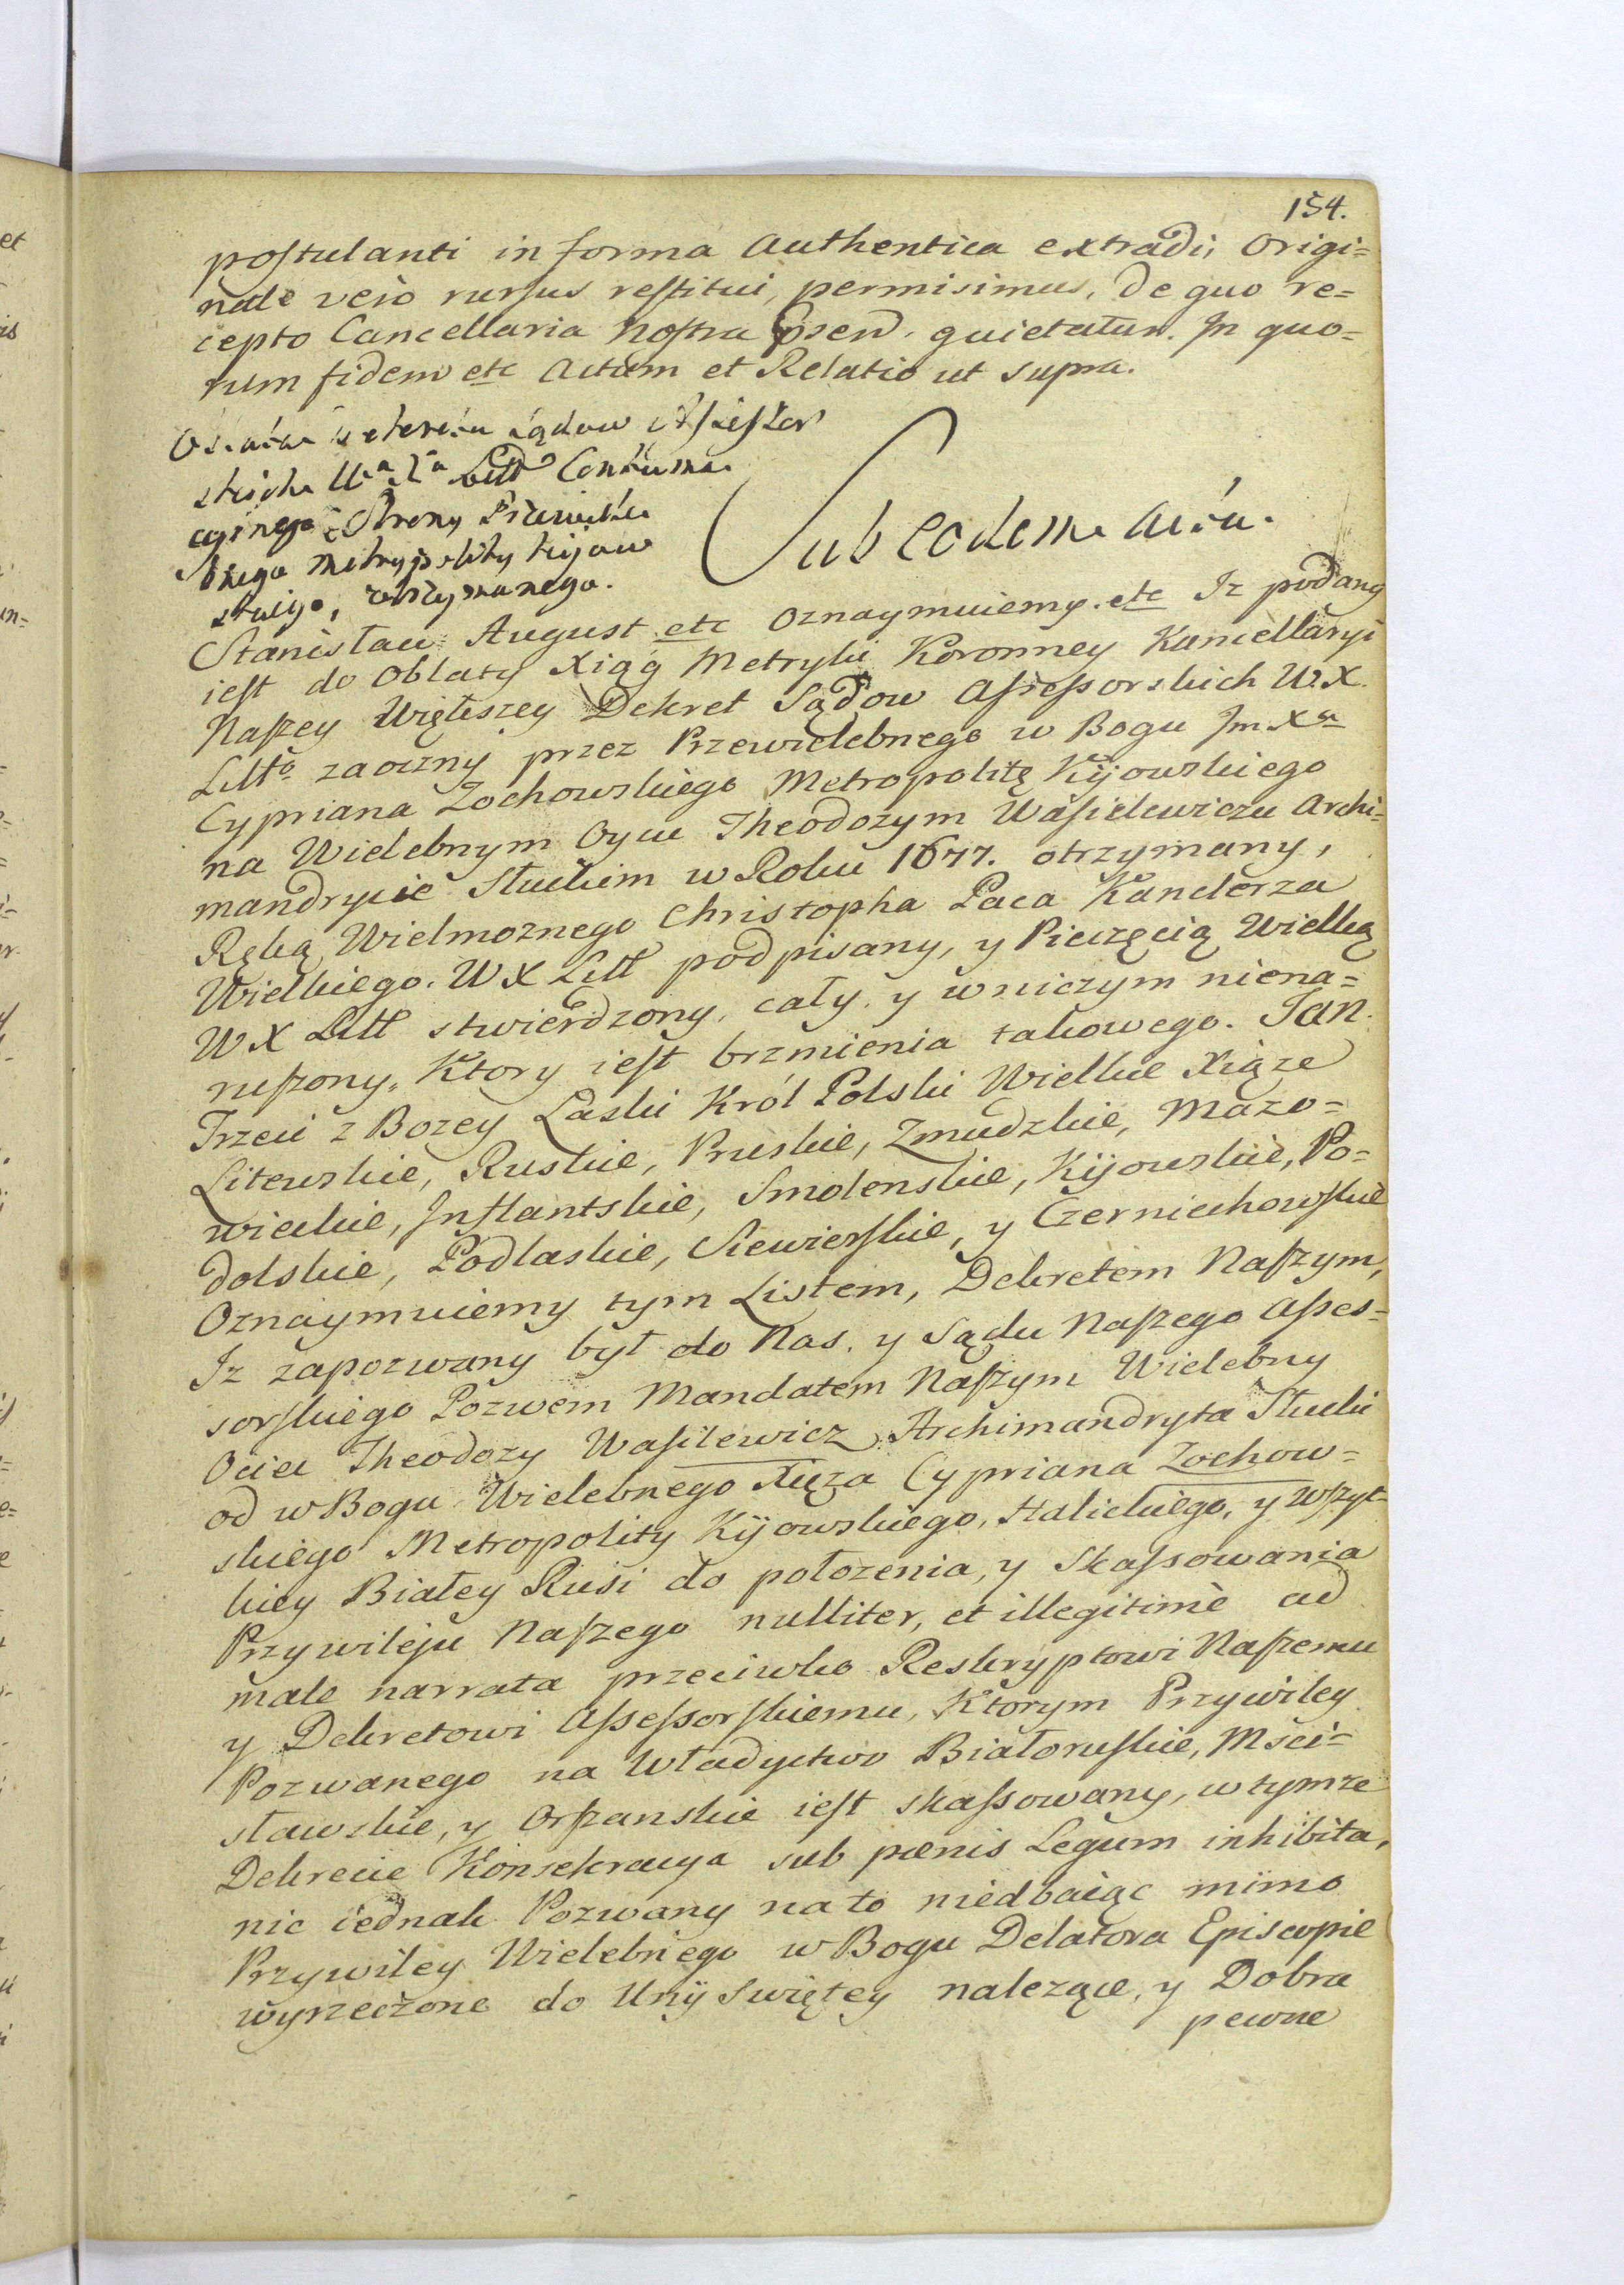 154.
postulanti in forma Authentica extradi, Origi=
nale verò rursus restitui, permisimus, de quo re=
cepto Cancellaria Nostra quietatur. In quo=
rum fidem etc Actum et Relatio ut supra.
Oblata Dekretu Sądow Assessor
skich W. X. Litt Contuma
cyinego z Strony Przewiele
bnego Metropolity Kijow
skiego, otrzymanego.
Sub eodem Actu.
Stanisław August etc Oznaymuiemy. etc Iz podany
iest do Oblaty Xiąg Metryki Koronney Kancellaryi
Naszey Więtszey Dekret Sądow Assessorskich W. X.
Litto zaoczny przez Przewielebnego w Bogu Im. Xa
Cypriana Zochowskiego Metropolitę Kijowskiego
na Wielebnym Oycu Theodozym Wasilewiczu Archi=
mandrycie Słuckim w Roku 1677. otrzymany,
Ręką Wielmoznego Christopha Paca Kanclerza
Wielkiego. W X Litt podpisany, y Pieczęcią Wielką
W X Litt stwierdzony, cały, y w niczym niena=
ruszony, Ktory iest brzmienia takowego. Jan
Trzeci z Bozey Łaski Król Polski Wielkie Xiąze
Litewskie, Ruskie, Pruskie, Zmudzkie, Mazo=
wieckie, Inflantskie, Smolenskie, Kijowskie, Po=
dolskie, Podlaskie, Siewierskie, y Czerniechowskie
Oznaymuiemy tym Listem, Dekretem Naszym,
Iz zapozwany był do Nas, y Sądu Naszego Asses=
sorskiego Pozwem Mandatem Naszym Wielebny
Ociec Theodozy Wasilewicz Archimandryta Słucki
od w Bogu Wielebnego Xięza Cypriana Zochow=
skiego Metropolity Kijowskiego, Halickiego, y Wszyt=
kiey Białey Rusi do połozenia, y Skassowania
Przywileju Naszego nulliter, et illegitimè ad
male narrata przeciwko Reskryptowi Naszemu
y Dekretowi Assessorskiemu, Ktorym Przywiley
Pozwanego na Władyctwo Białoruskie, Mści=
sławskie, y Orszanskie iest skassowany, w tymze
Dekrecie Konsekracya sub pœnis Legum inhibita,
nic iednak Pozwany na to niedbaiąc mimo
Przywiley Wielebnego w Bogu Delatora Episcopie
wyrzeczone do Unij Swiętey nalezące, y Dobra
pewne